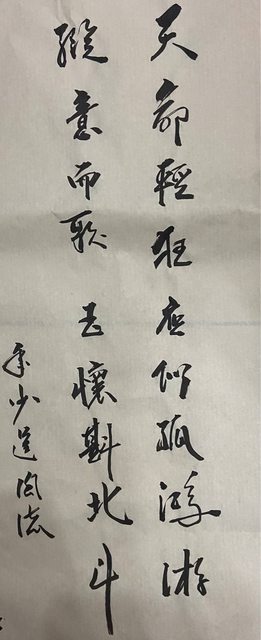 天命輕狂應似孤鴻游
縱意而歌懷斟北斗
年少逞风流